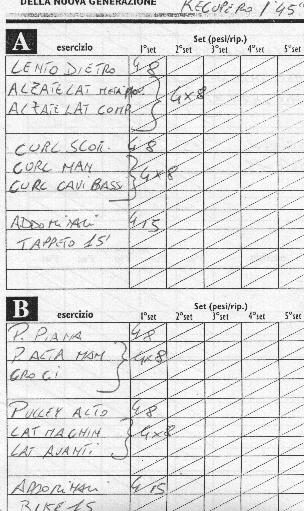 DELLA NUOVA GENERAZIONE RECUPERO 1'45"
A Set (pesi/rip.)
esercizio 1°set 2°set 3°set 4°set 5°set
LENTO DIETRO 4 8
ALZATE LAT
ALZATE LAT COMP. 4x8
CURL SCOT. 4 8
CURL MAN 4x8
CURL CAVI BASSI
ADDOMINALI 4 15
TAPPETO 15'
B Set (pesi/rip.)
esercizio 1°set 2°set 3°set 4°set 5°set
P. PIANA 4 8
P. ALTA MAM 4x8
CROCI
PULLEY ALTO 4 8
LAT MACHIN 4x8
LAT AVANTI
ADDOMINALI 4 15
BIKE 15